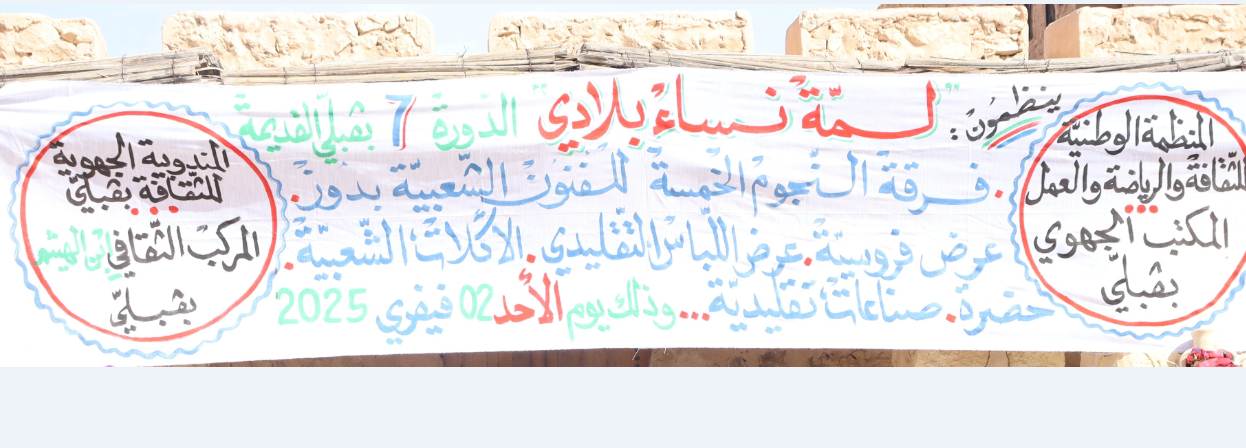 المنظمة الوطنية
للثقافة والرياضة والعمل
المكتب الجهوي
بقبلي
ينظمون:
"لمّة نساء بلادي" الدورة 7 بقبلي القديمة
.فرقة النجوم الخمسة للفنون الشعبيّة بدوز.
عرض فروسيّة.عرض اللّباس التّقليدي.الأكلات الشّعبيّة.
حضرة.صناعات تقليديّة...وذلك يوم الأحد 02 فيفري 2025
المندوبية الجهوية
للثّقافة بقبلي
المركب الثّقافي إبن الهيثم
بقبلي